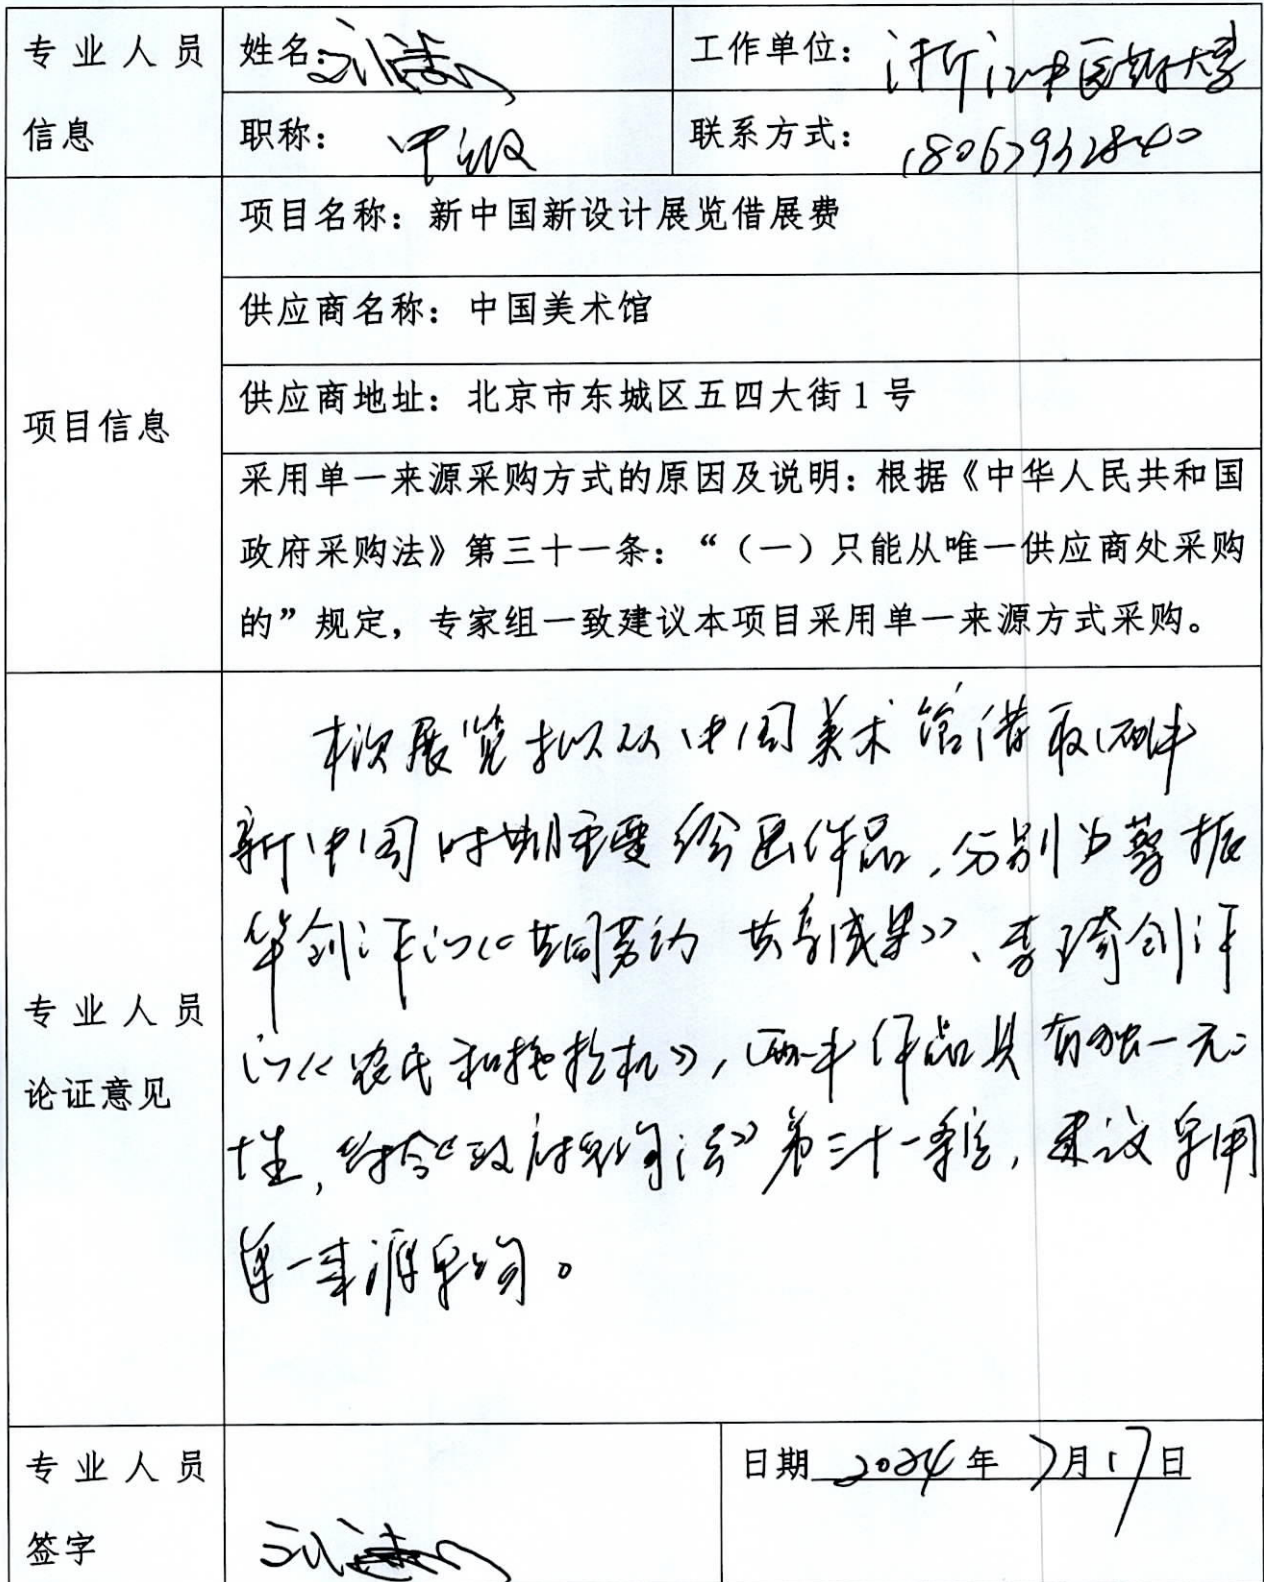 专业人员信息
姓名:
工作单位: 浙江中医药大学
职称: 中级
联系方式:
项目信息
项目名称: 新中国新设计展览借展费
供应商名称: 中国美术馆
供应商地址: 北京市东城区五四大街 1 号
采用单一来源采购方式的原因及说明: 根据《中华人民共和国
政府采购法》第三十一条: “（一）只能从唯一供应商处采购
的”规定，专家组一致建议本项目采用单一来源方式采购。
专业人员论证意见
本次展览拟从中国美术馆借取两件
新中国时期重要绘画作品，分别为蔡振
华创作的《共同劳动 共享成果》、李琦创作
的《农民和拖拉机》，两件作品具有独一无二
性，符合《政府采购法》第三十一条，建议采用
单一来源采购。
专业人员签字
日期 2024年 7月17日